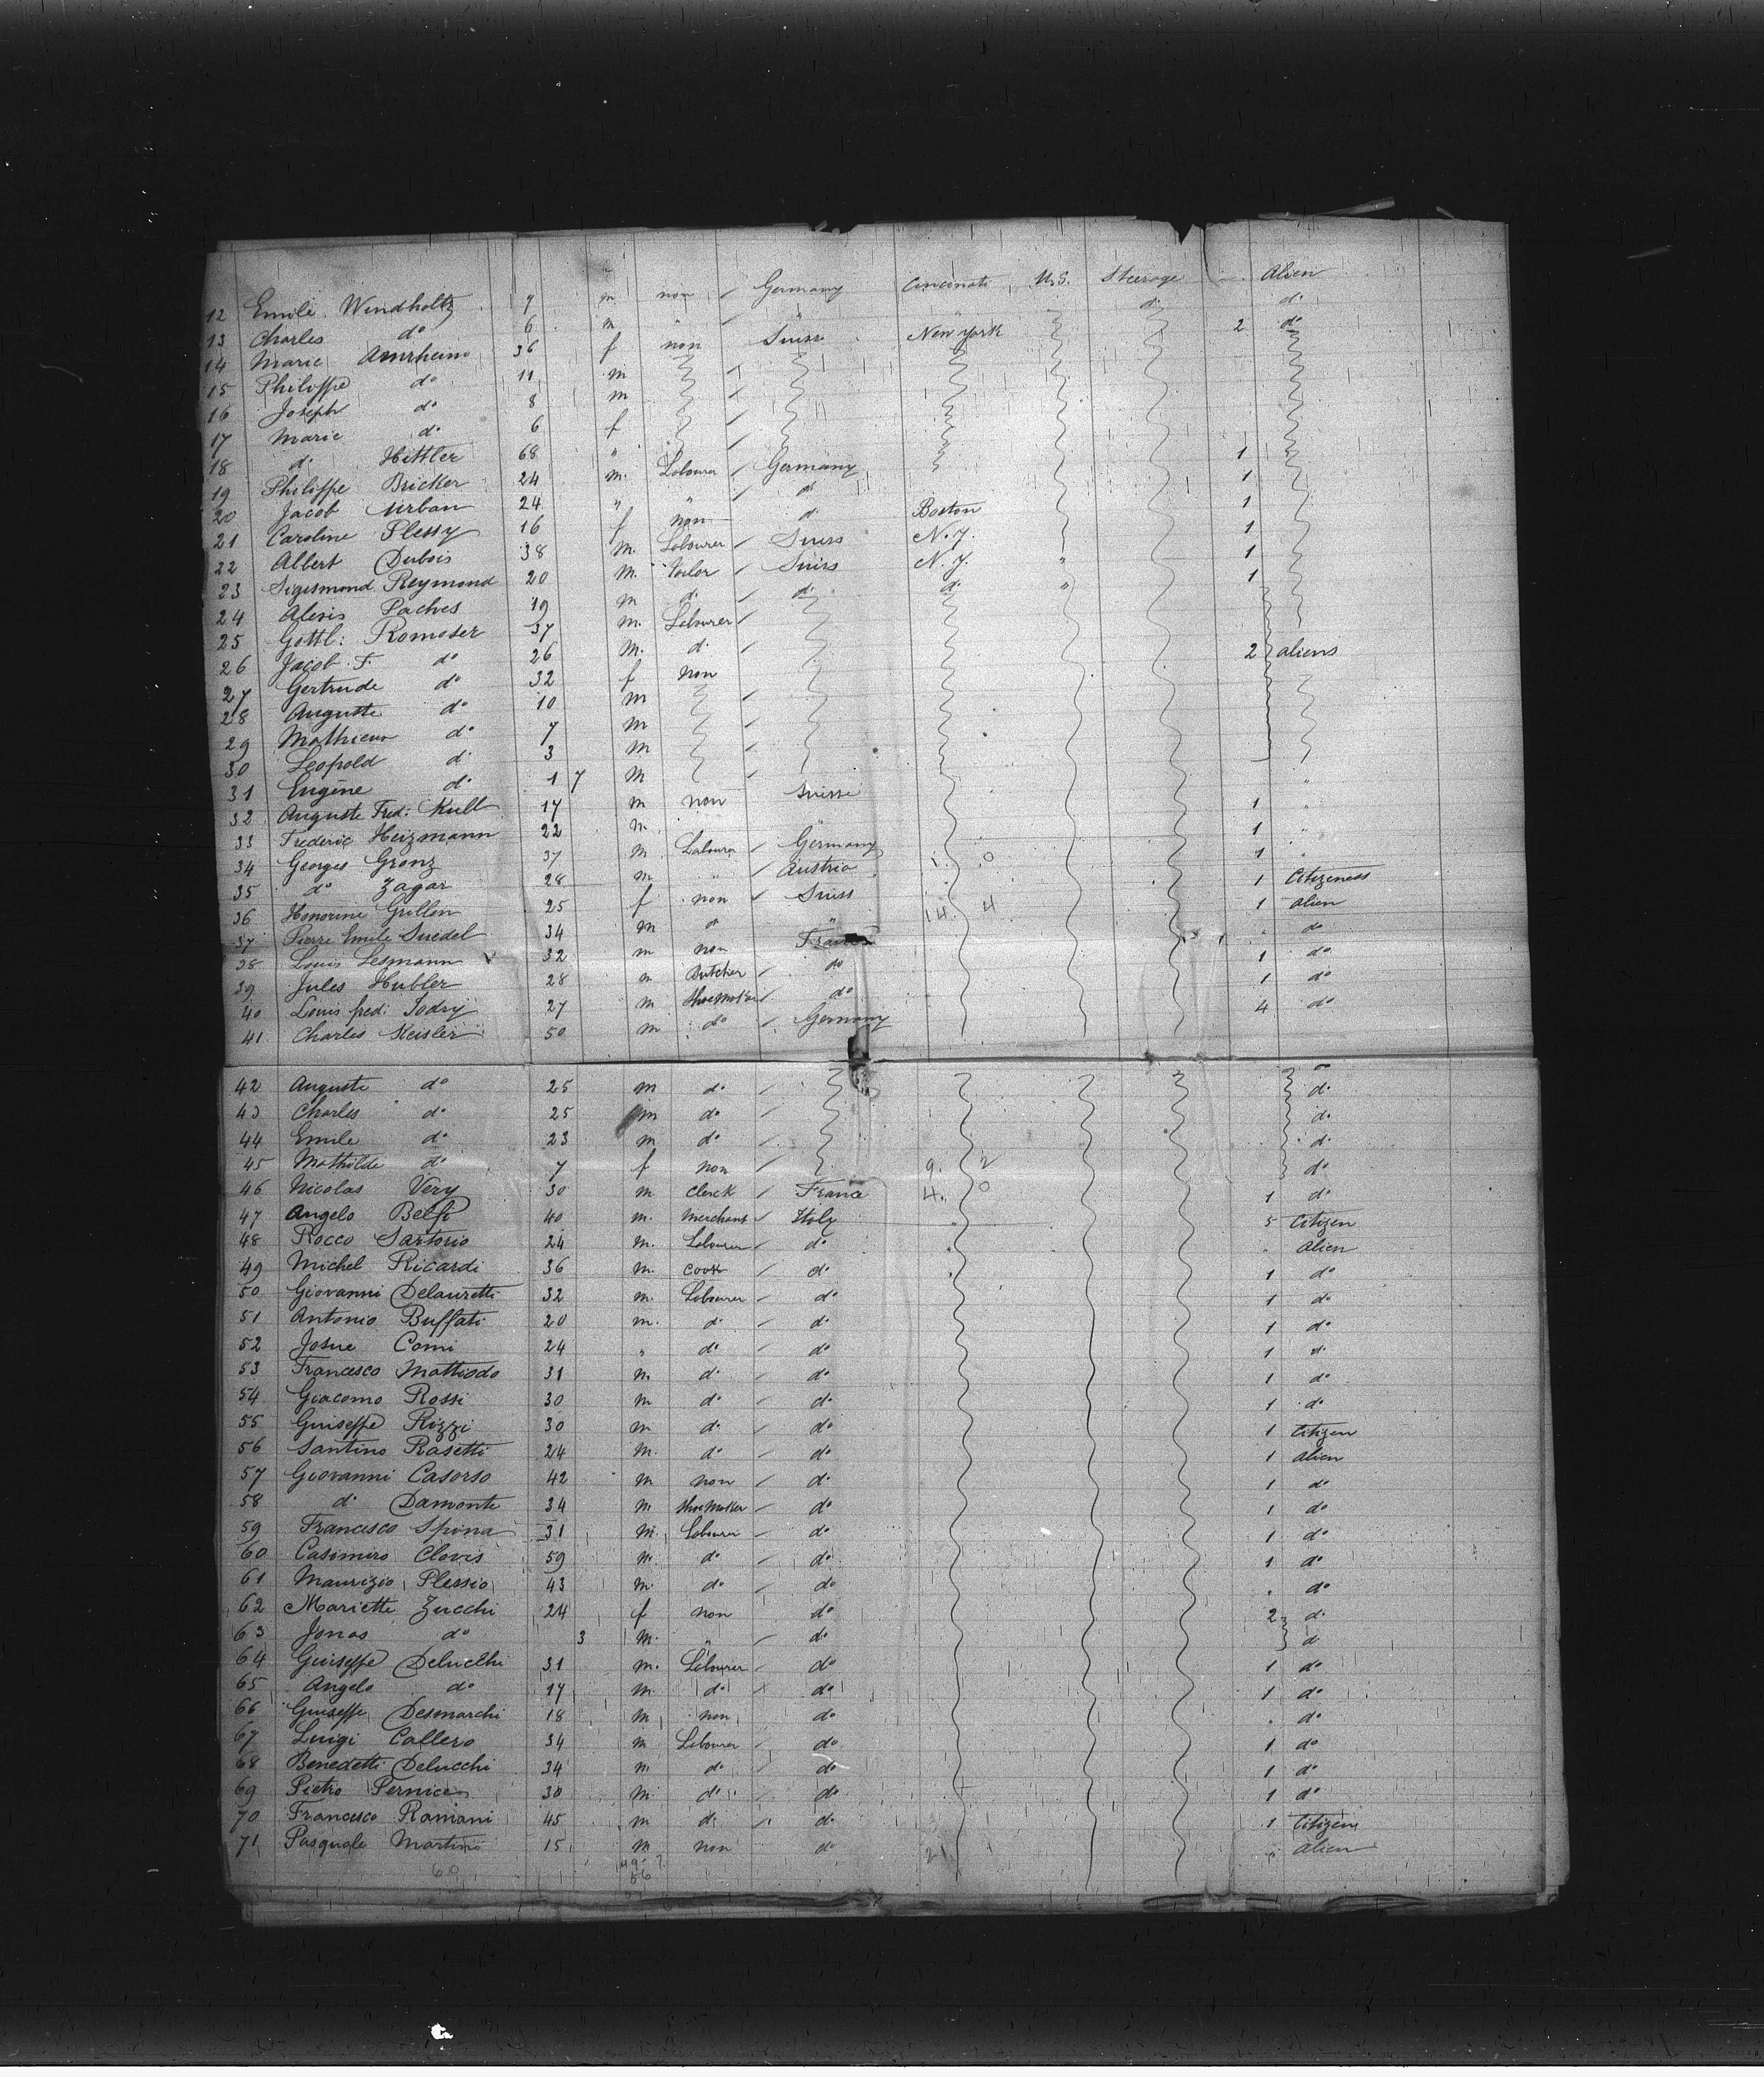 12 Emile Windholtz 7 m non Germany Cincinati U.S. Steerage Alien
13 Charles do 6 m " " " d. d.
14 Marie Amrheim 36 f non Suiss New York 2 do
15 Philippe do 11 m
16 Joseph do 8 m
17 Marie do 6 f
18 d. Hittler 68 "
19 Philippe Bricker 24 m. Labourer Germany 1
20 Jacob Urban 24 " " d. 1
21 Caroline Plessy 16 f non d. Boston 1
22 Albert Dubois 38 m. Labourer Suiss N.Y. 1
23 Sigismond Reymond 20 m. Tailor Suiss N.Y. " 1
24 Alexis Paches 19 m d. d. d. " 1
25 Gottl: Romoser 37 m. Labourer
26 Jacob F. do 26 m. d. 2 aliens
27 Gertrude do 32 f non
28 Auguste do 10 m
29 Mathieu do 7 m
30 Leopold d. 3 m
31 Eugène do 1 7 m
32 Auguste Fred: Kull 17 m non Suisse 1 "
33 Frederic Heizmann 22 m " 1 "
34 Georges Gronz 37 m Labourer Germany 1 "
35 do Zagar 28 m " Austria 1. 0
36 Honorine Grillon 25 f non Suiss 1 Citizeness
37 Pierre Emile Suedel 34 m d " 14. 4 1 alien
38 Louis Lesmann 32 m non France do
39 Jules Hubler 28 m Butcher do 1 do
40 Louis fred: Jodry 27 m Shoemaker do 1 do
41 Charles Keisler 50 m do Germany 4 do
42 Auguste do 25 m do d.
43 Charles do 25 m do d.
44 Emile do 23 m do d.
45 Mathilde do 7 f non 9. 2 do
46 Nicolas Very 30 m Clerck France 4. 0 1 do
47 Angelo Belfi 40 m. Merchant Italy 5 Citizen
48 Rocco Sartorio 24 m. Labourer do Alien
49 Michel Ricardi 36 m. Cook do 1 do
50 Giovanni Delauretti 32 m. Labourer do 1 do
51 Antonio Buffati 20 m. d. do 1 do
52 Josue Comi 24 " do do 1 d.
53 Francesco Mattiodo 31 m. d. do 1 do
54 Giacomo Rossi 30 m do do 1 do
55 Guiseppe Rizzi 30 m do do 1 Citizen
56 Santino Rasetti 24 m. do do 1 alien
57 Giovanni Casorso 42 m non d. 1 do
58 d. Damonte 34 m Shoemaker do 1 do
59 Francesco Spina 31 m. Labourer do 1 do
60 Casimiro Clovis 59 m. do do 1 do
61 Maurizio Plessio 43 m. do do do
62 Mariette Zucchi 24 f non do 2 d.
63 Jonas do 3 m. " do d
64 Guiseppe Delucchi 31 m. Labourer do 1 do
65 Angelo do 17 m do do 1 do
66 Guiseppe Desmarchi 18 m non do do
67 Luigi Callero 34 m Labourer do 1 do
68 Benedetti Delucchi 34 m do do 1 do
69 Pietro Pernice 30 m do do 1 do
70 Francesco Raniani 45 m d. do 1 Citizen
71 Pasquale Martino 15 m non do 21 alien
60 56